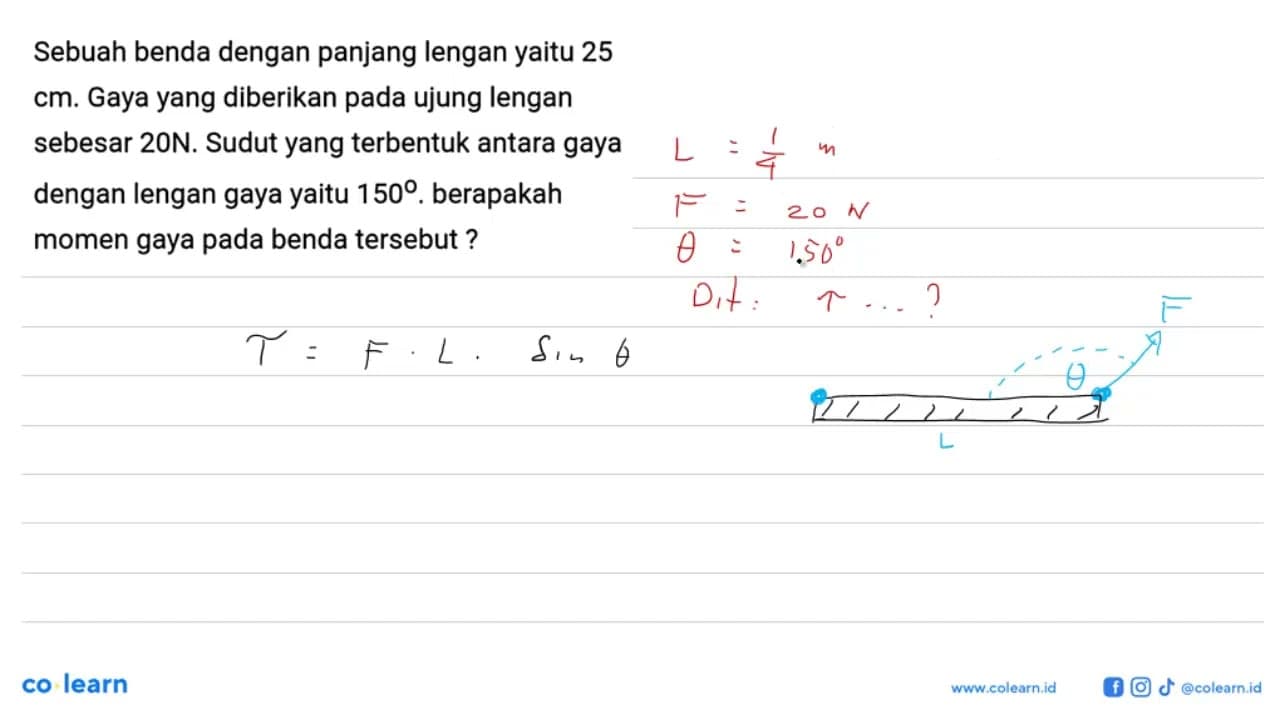 Sebuah benda dengan panjang lengan yaitu 25
cm. Gaya yang diberikan pada ujung lengan
sebesar 20N. Sudut yang terbentuk antara gaya
dengan lengan gaya yaitu 150°. berapakah
momen gaya pada benda tersebut ?
L = 1/4 m
F = 20 N
θ = 150°
Dit : τ ... ?
τ = F . L . Sin θ
F
θ
L
co learn
www.colearn.id
@colearn.id